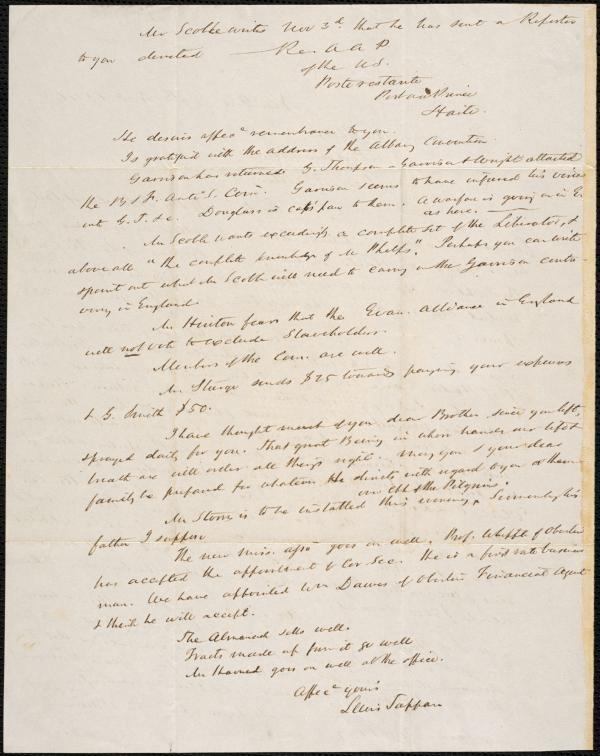 Mr Scoble writes Nov 3d that he has sent a Reporter
to you directed — Rev. A A P
of the U.S.
Poste restante
Port au Prince
Haite.
He desires affece remembrance to you.
Is gratified with the address of the Albany Convention.
Garrison has returned. G. Thompson – Garrison & Wright attacked
the B & F. Anti S. Com. Garrison seems to have infused his views
into G. T. &c. Douglass is cap's paw to them. A warfare is going on in E.
as here.
Mr Scoble wants exceedingly a complete set of the Liberator, &
above all "the complete of Mr Phelps". Perhaps you can write
& point out what Mr Scoble will need to carry on the Garrison contro-
versy in England.
Mr Hinton fears that the Evan. Alliance in England
will not vote to exclude Slaveholders.
Members of the Com. are well.
Mr Sturge sends $25 towards paying your expenses
& G. Smith $50.
I have thought much of you, dear Brother, since you left,
& prayed daily for you. That great Being in whose hands our life &
breath are will order all things right. May you & your dear
family be prepared for whatever He directs with regard to you or them.
over Chh of the Pilgrims.
Mr Storrs is to be installed this evening. Sermon by his
father I suppose.
The new Miss. asson goes on well. Prof. Whipple of Oberlin
has accepted the appointment of Cor Sec. He is a first rate business
man. We have appointed Wm Dawes of Oberlin Financial Agent
& think he will accept.
The Almanac sells well.
Tracts made up from it go well
Mr Harned goes on well at the office.
Affece yours
Lewis Tappan